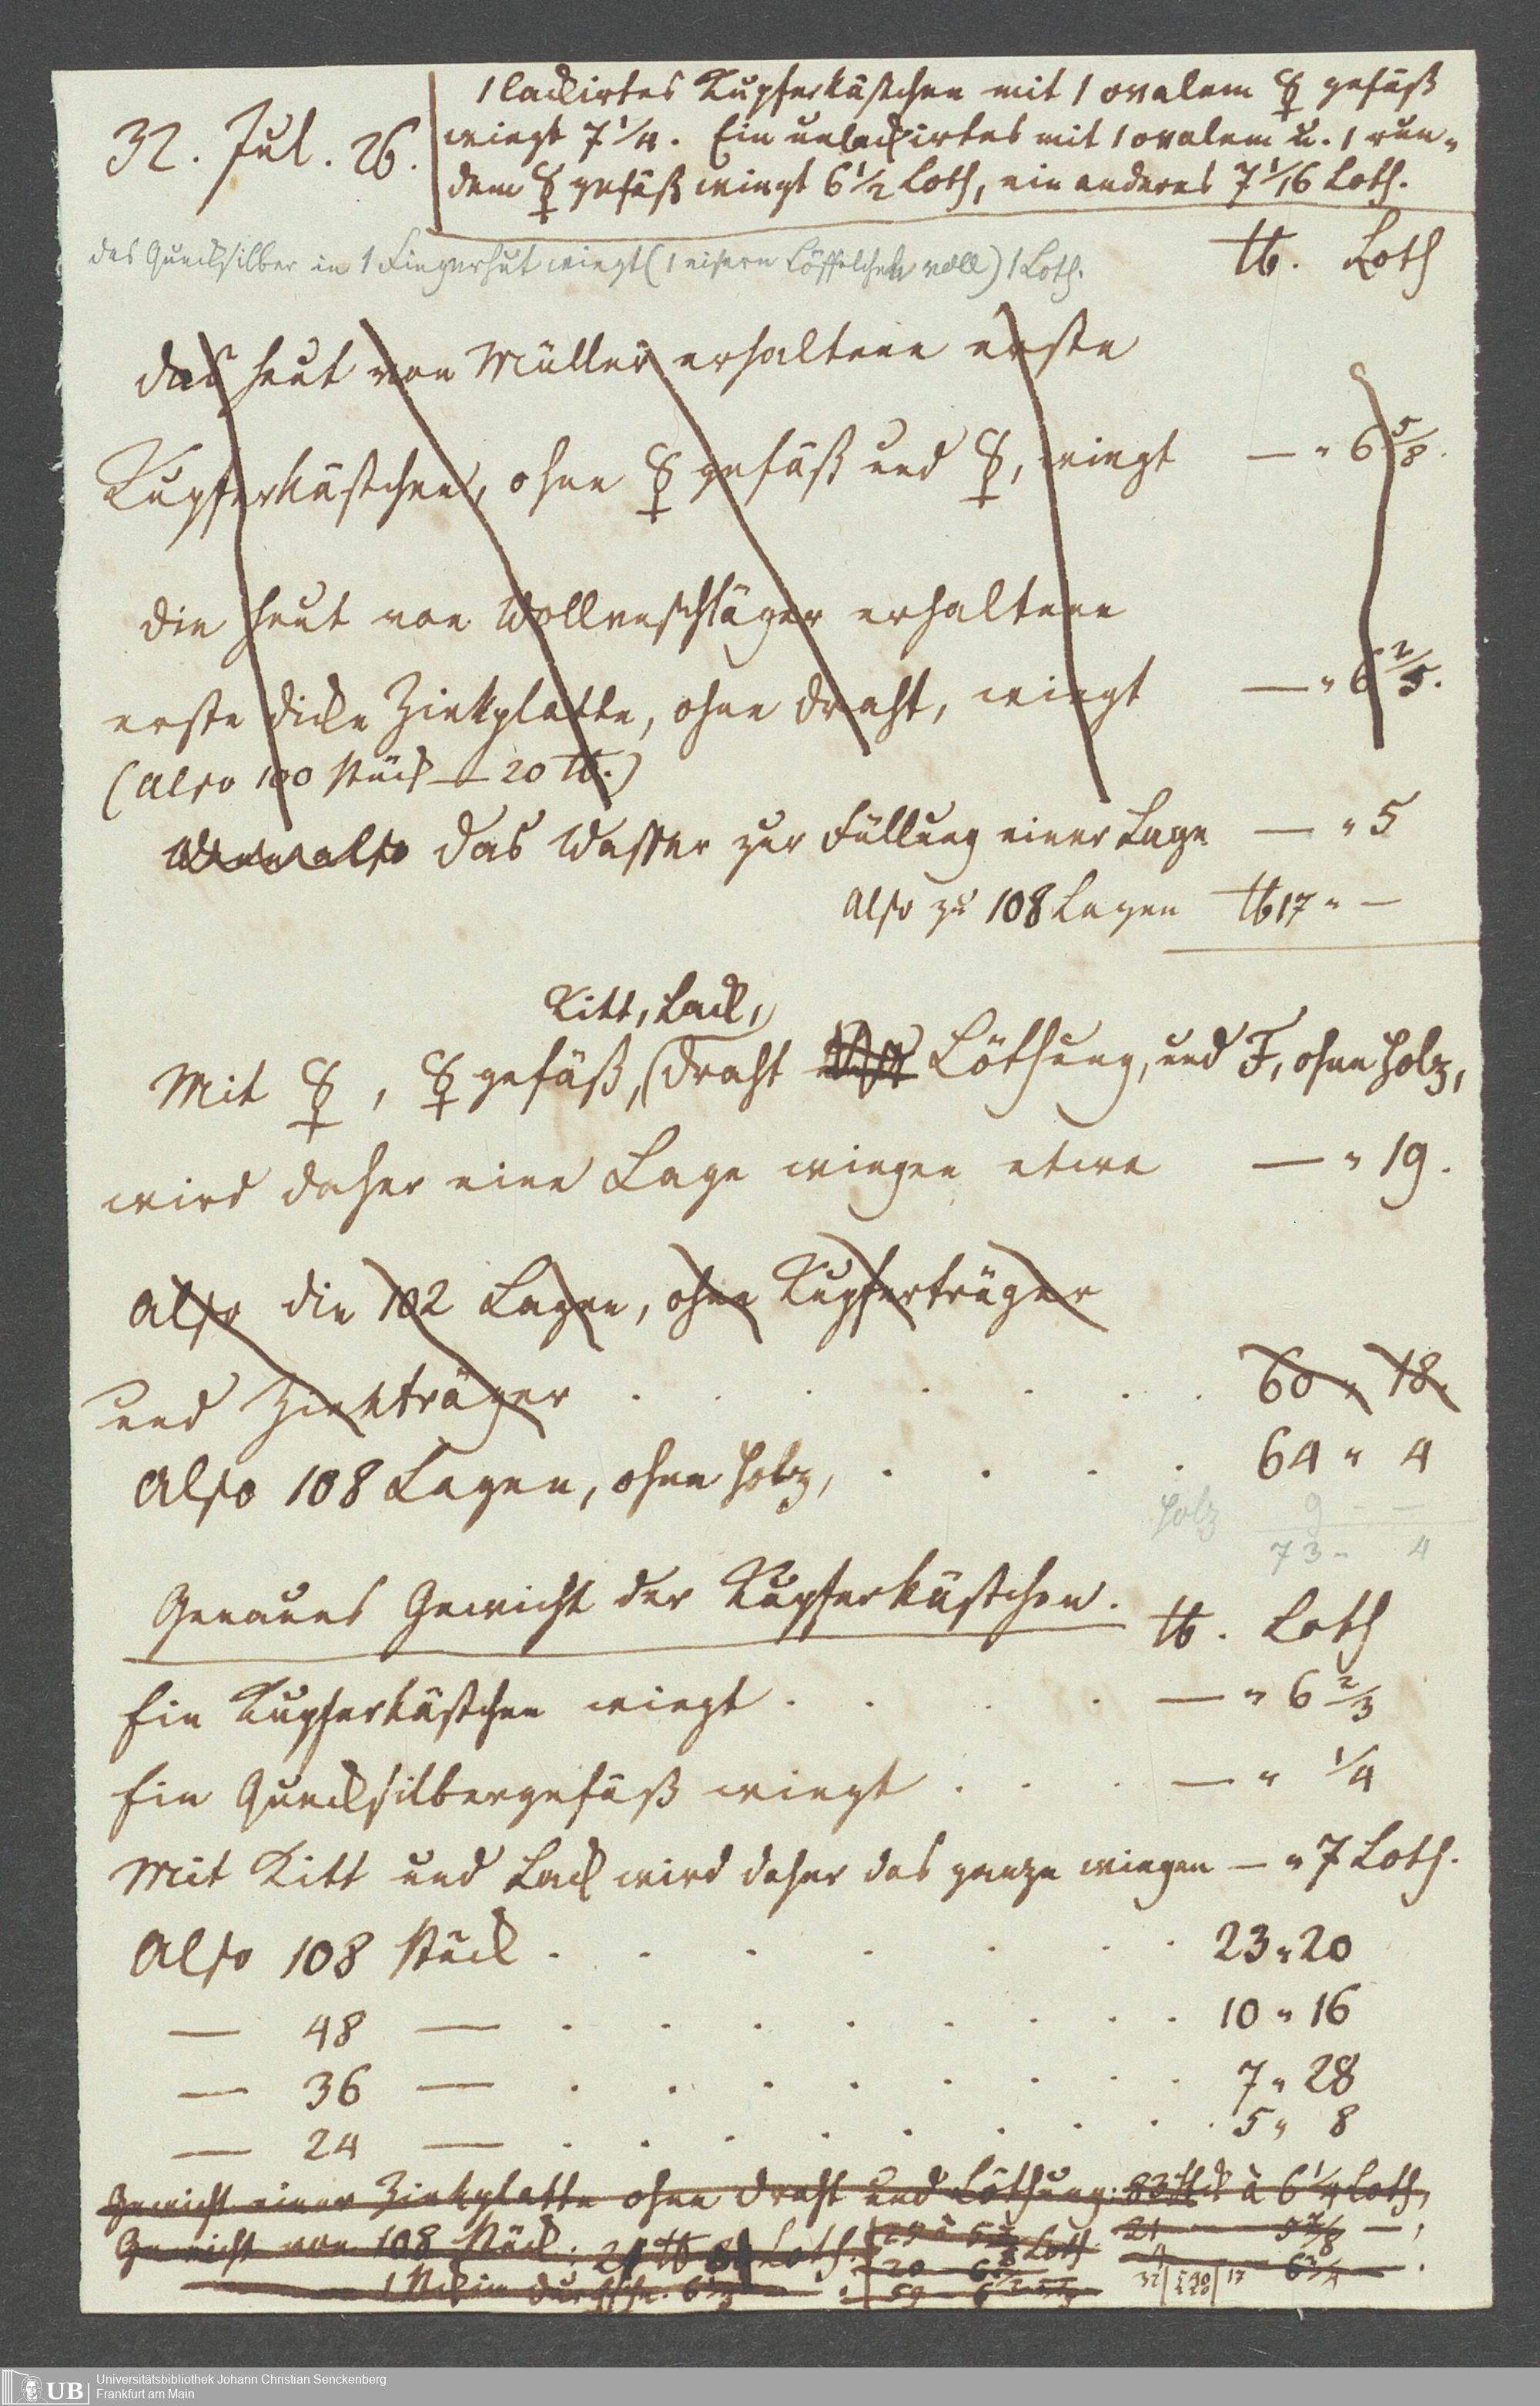 1 lackirtes Kupferkästchen mit 1 ovalem ☿ gefäß
32. Jul. 26. wiegt 7 1/4. Ein unlackirtes mit 1 ovalem u. 1 run-
dem ☿ gefäß wiegt 6 1/2 Loth, ein anderes 7 1/16 Loth.
das Quecksilber in 1 Fingerhut wiegt (1 eisern Löffelchen voll) 1 Loth.
℔. Loth
das heut von Müller erhaltene erste
Kupferkästchen, ohne ☿ gefäß und ☿, wiegt — " 6 5/8.
die heut von Wollenschläger erhaltene
erste dicke Zinkplatte, ohne Draht, wiegt — " 6 2/5.
(Also 100 Stück — 20 ℔.)
also das Wasser zur Füllung einer Lage — " 5
Also zu 108 Lagen ℔ 17 " —
Kitt, Lack,
Mit ☿, ☿ gefäß, Draht Löthung, und F, ohne Holz,
wird daher eine Lage wiegen etwa — " 19.
Also die 102 Lagen, ohne Kupferträger
und Zinkträger . . . . . . . 60 " 18.
Also 108 Lagen, ohne Holz, . . . . 64 " 4
Holz 9 - —
73 - 4
Genaues Gewicht der Kupferkästchen. ℔. Loth
Ein Kupferkästchen wiegt . . . . — " 6 2/3
Ein Quecksilbergefäß wiegt . . . — " 1/4
Mit Kitt und Lack wird daher das ganze wiegen — " 7 Loth.
Also 108 Stück . . . . . . . 23 " 20
— 48 — . . . . . . . . 10 " 16
— 36 — . . . . . . . . 7 " 28
— 24 — . . . . . . . . 5 " 8
Gewicht einer Zinkplatte ohne Draht und Löthung: à 6 1/4 Loth,
Gewicht von 108 Stück: Loth. Loth. 21 5 7/8 —,
1 Stck im Durchschn. 20 6 6 3/4 — .
59
Universitätsbibliothek Johann Christian Senckenberg
UB Frankfurt am Main